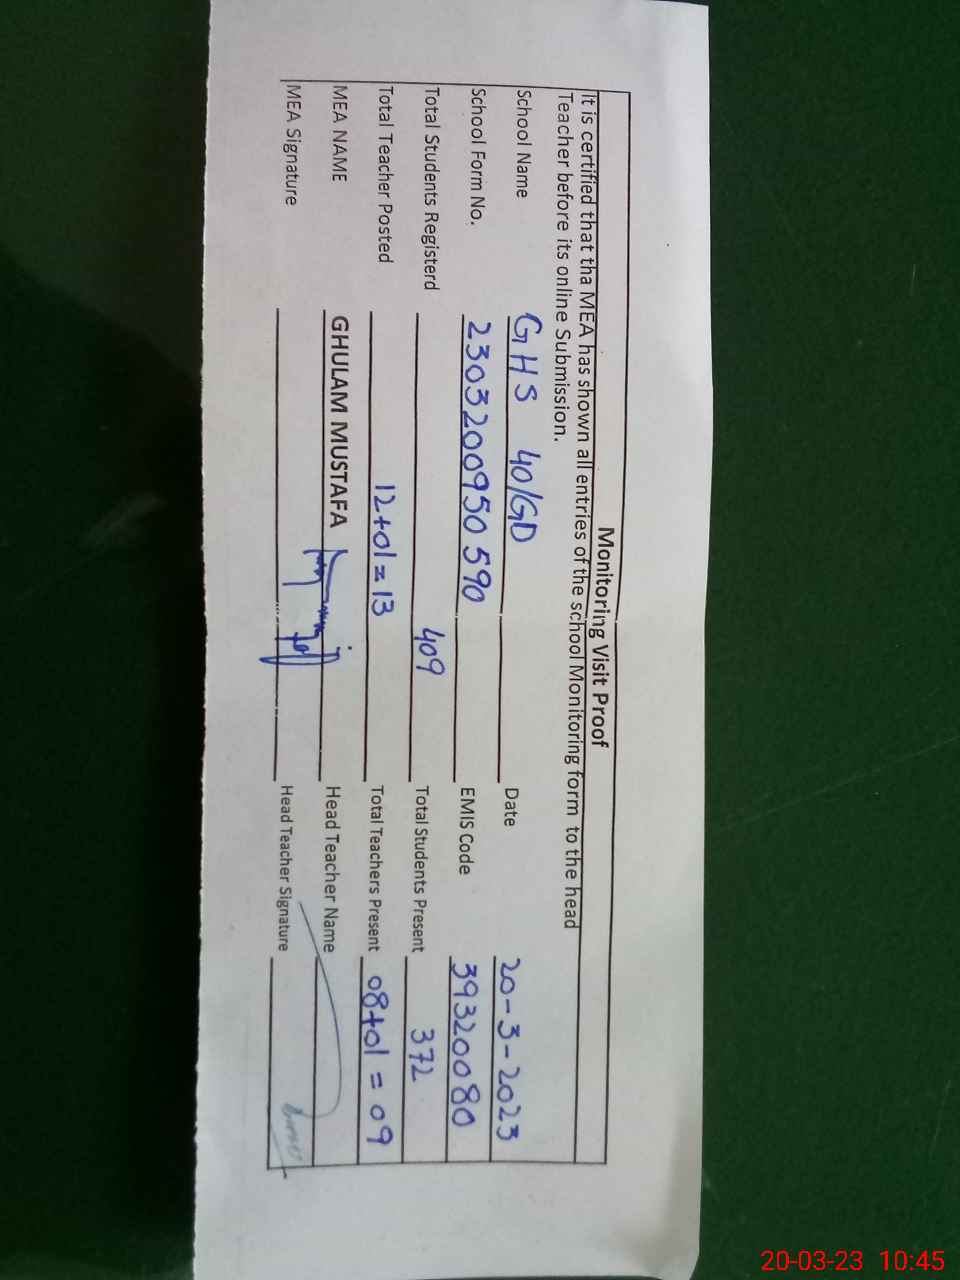 Monitoring Visit Proof
It is certified that tha MEA has shown all entries of the school Monitoring form to the head
Teacher before its online Submission.
School Name GHS 40/GD Date 20-3-2023
School Form No. 2303200950590 EMIS Code 39320080
Total Students Registerd 409 Total Students Present 372
Total Teacher Posted 12+01=13 Total Teachers Present 08+01=09
MEA NAME GHULAM MUSTAFA Head Teacher Name
MEA Signature Head Teacher Signature
20-03-23 10:45